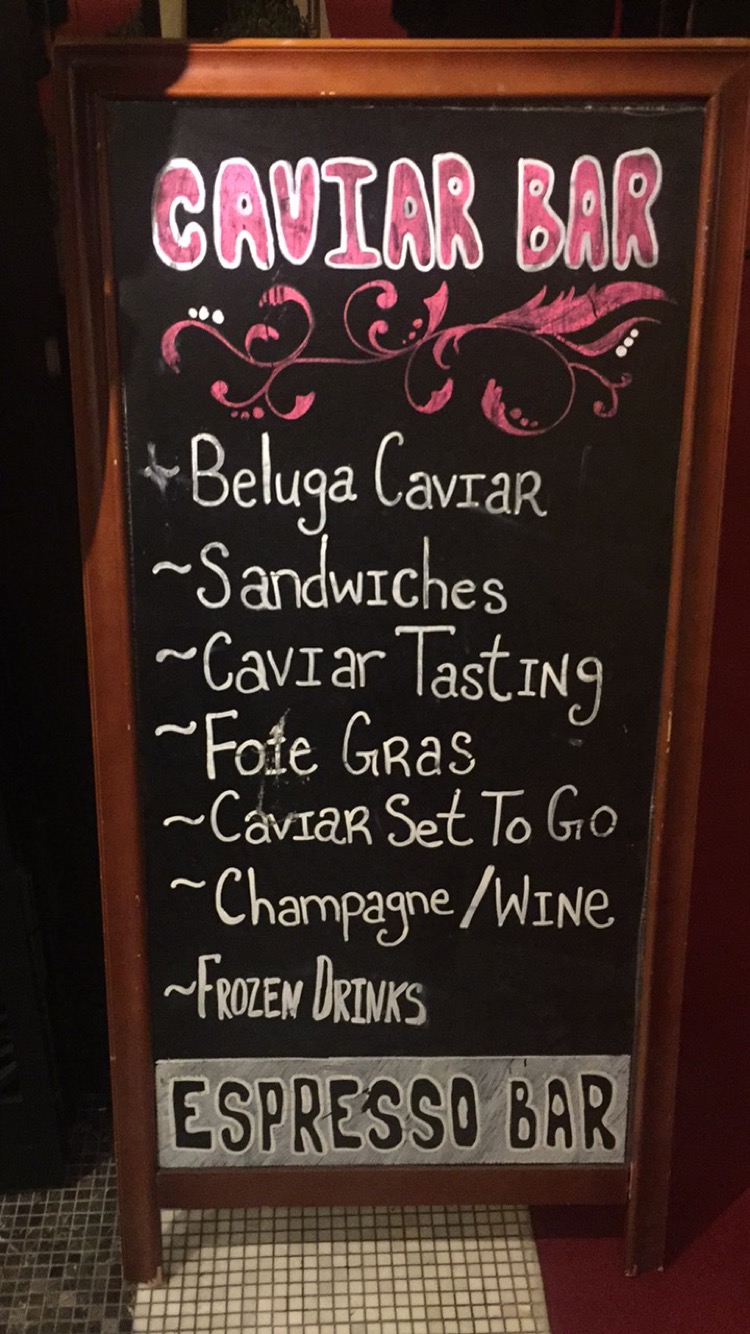 CAVIAR BAR
~Beluga Caviar
~Sandwiches
~Caviar Tasting
~Foie Gras
~Caviar Set To Go
~Champagne/Wine
~Frozen Drinks
ESPRESSO BAR